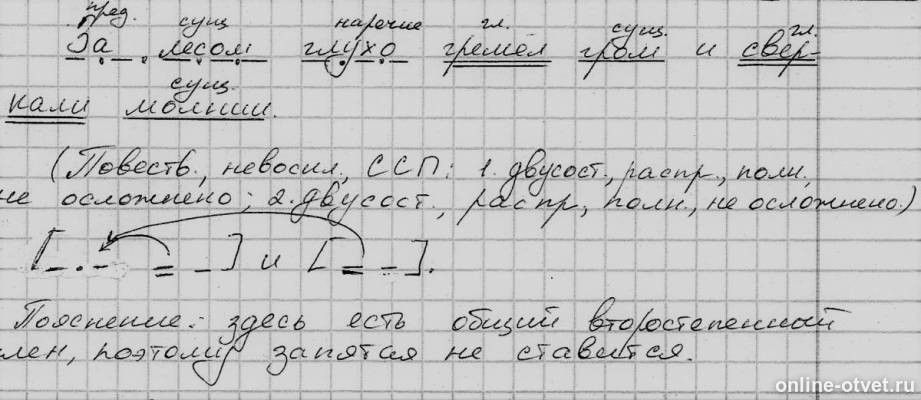 пред. сущ наречие гл. сущ. гл.
За лесом глухо гремел гром и свер-
сущ.
кали молнии.
(Повеств., невоскл., ССП: 1. двусост., распр., полн.,
не осложнено; 2. двусост., распр., полн., не осложнено.)
[ ] и [ ].
Пояснение: здесь есть общий второстепенный
член, поэтому запятая не ставится.
online-otvet.ru